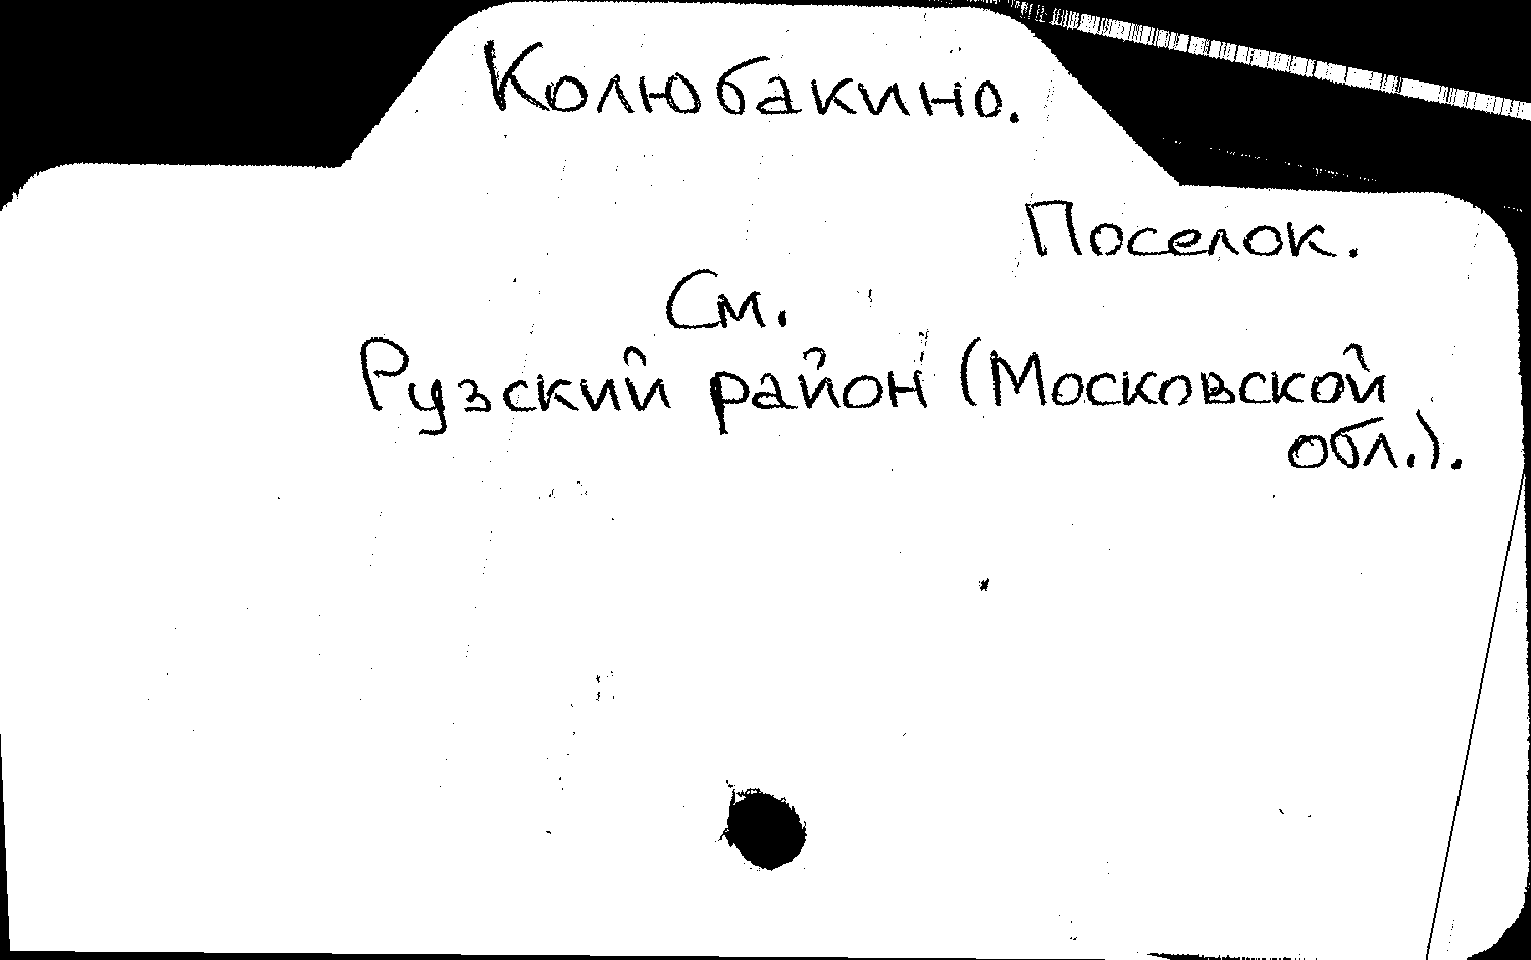 Колюбакино.
Поселок.
См.
Рузский район (Московской
обл.).